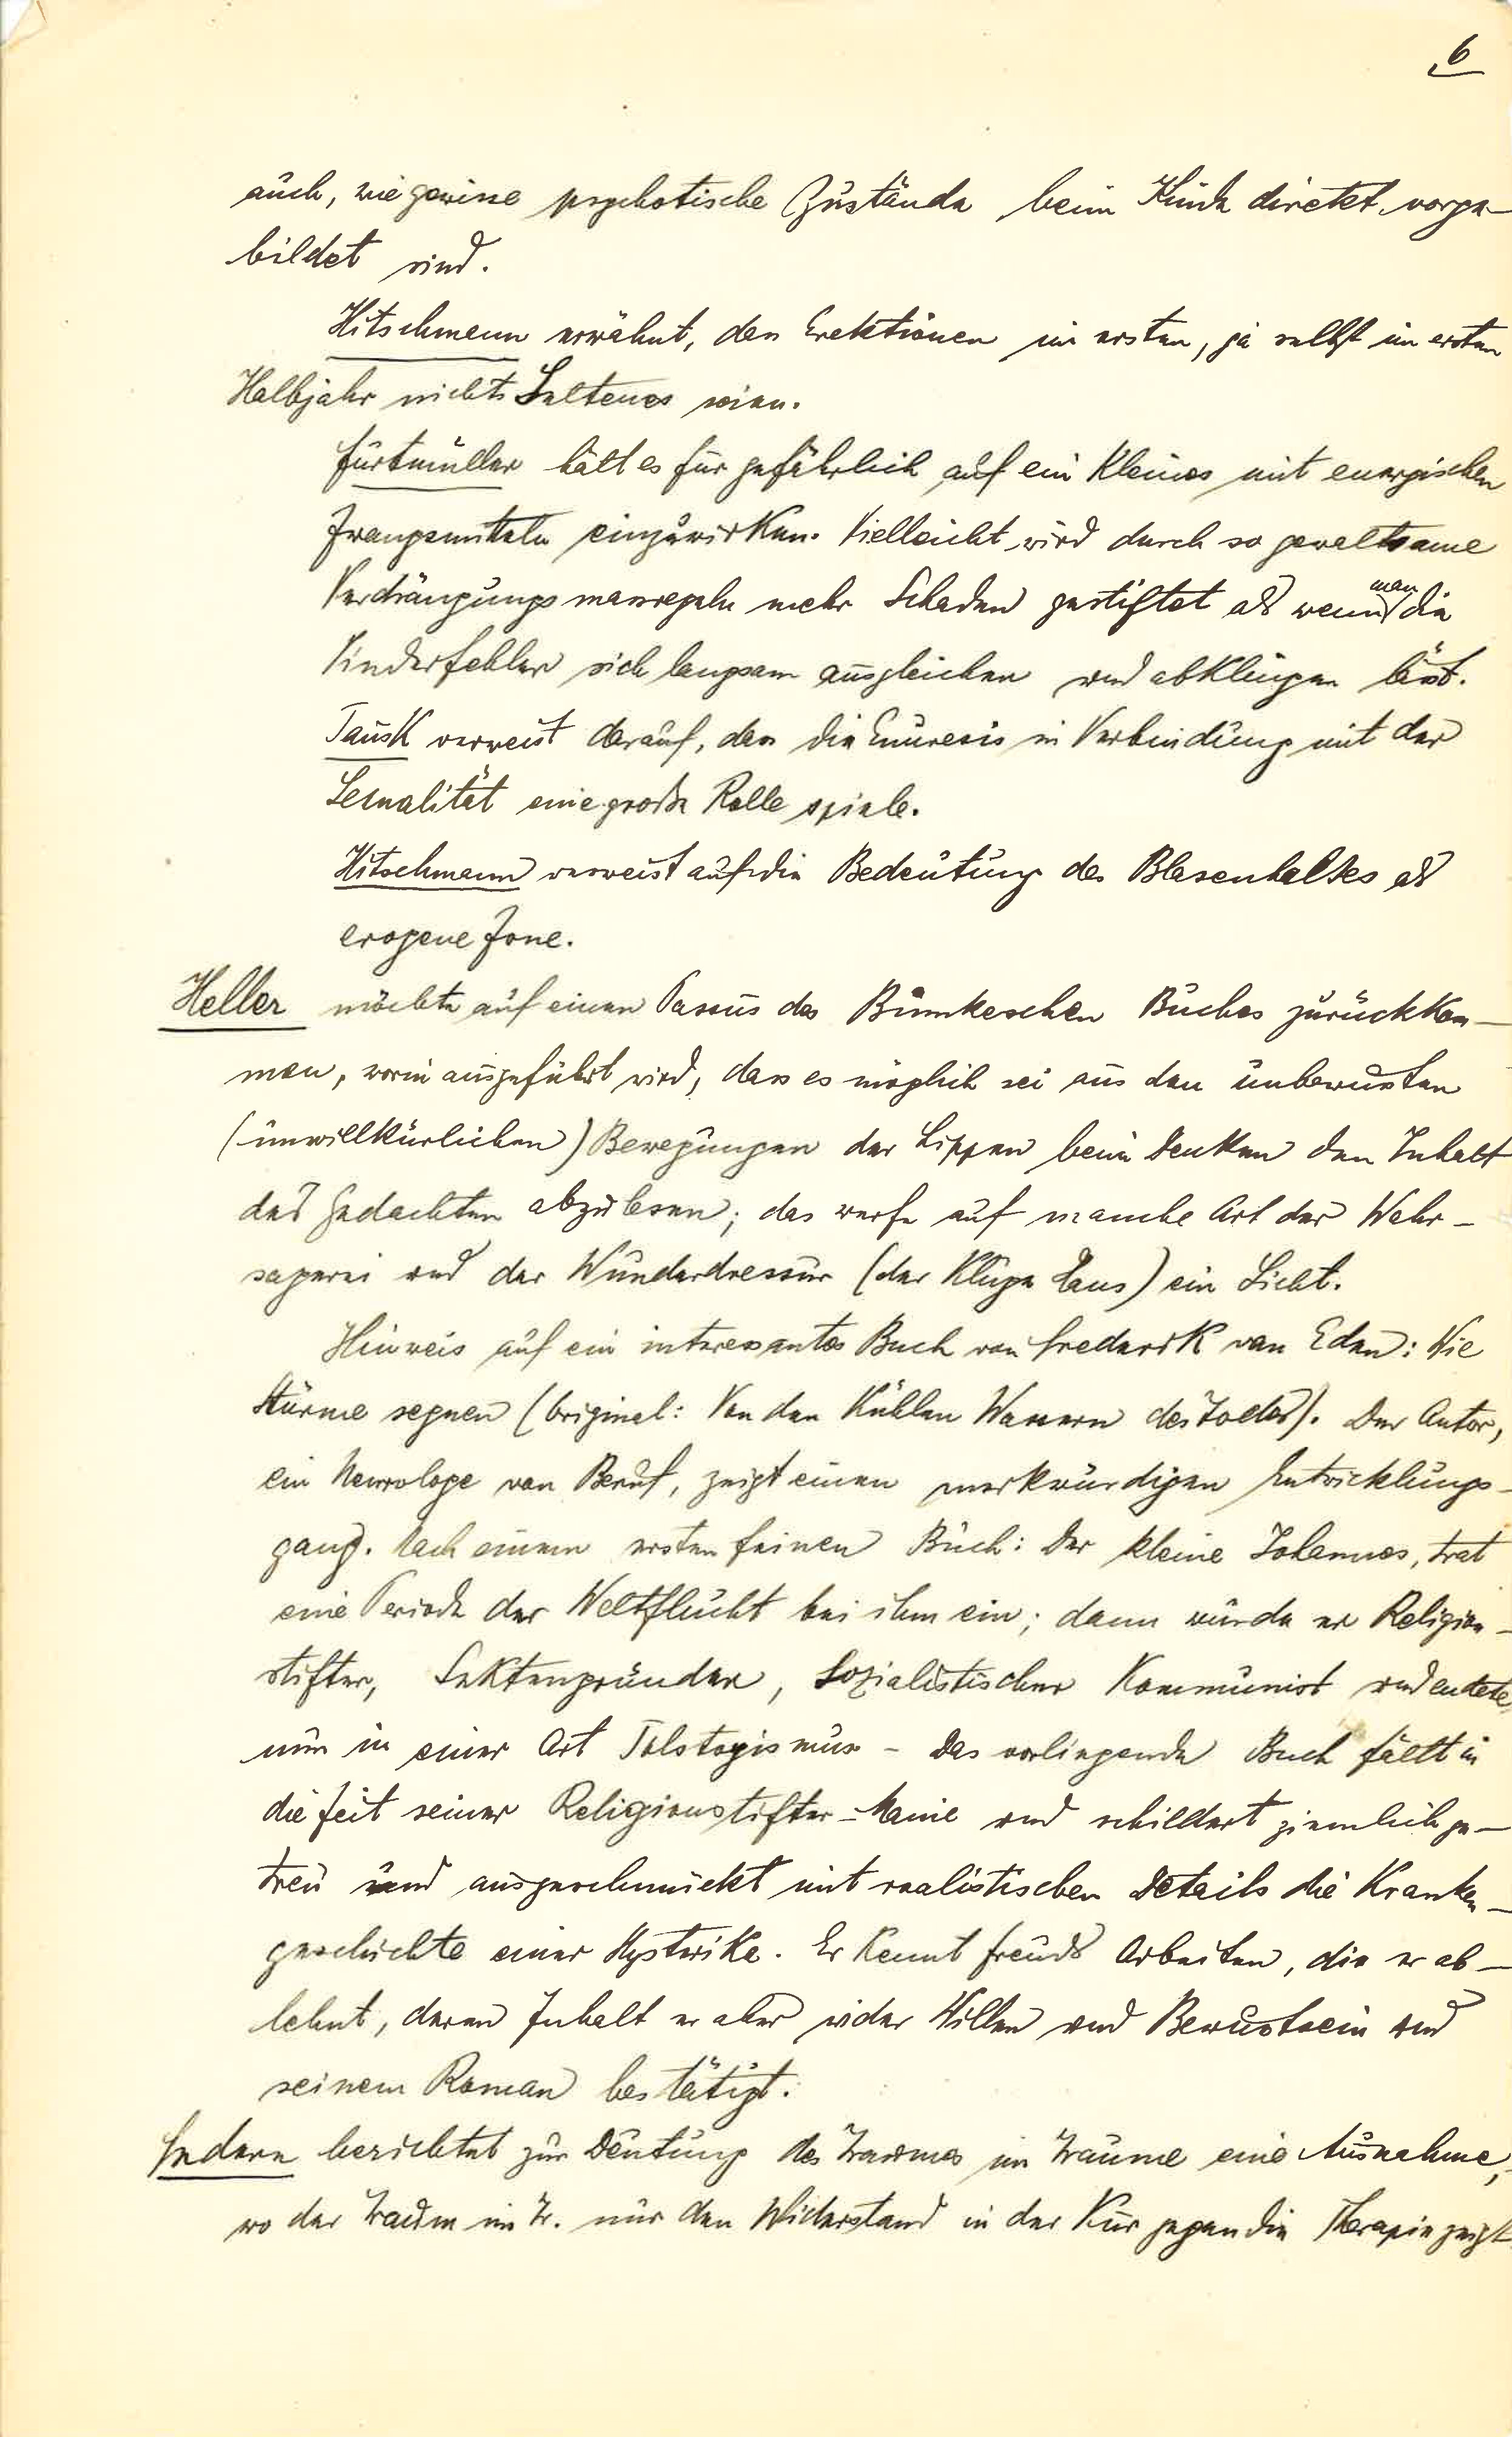 6
auch, wie gewisse psychotische Zustände beim Kinde direkt vorge-
bildet sind.
Hitschmann erwähnt, dass Erektionen im ersten, ja selbst im ersten
Halbjahr nichts Seltenes seien.
Furtmüller hält es für gefährlich auf ein Kleines mit energischen
Zwangsmitteln einzuwirken. Vielleicht wird durch so gewaltsame
Verdrängungsmassregeln mehr Schaden gestiftet als wenn man die
Kinderfehler sich langsam ausgleichen und abklingen lässt.
Tausk verweist darauf, dass die Enuresis in Verbindung mit der
Sexualität eine große Rolle spiele.
Hitschmann verweist auf die Bedeutung des Blasenhalses als
erogene Zone.
Heller möchte auf einen Passus des Bumkeschen Buches zurückkom-
men, worin ausgeführt wird, dass es möglich sei aus den unbewussten
(unwillkürlichen) Bewegungen der Lippen beim Denken den Inhalt
des Gedachten abzulesen; das werfe auf manche Art der Wahr-
sagerei und der Wunderdressur (der kluge Hans) ein Licht.
Hinweis auf ein interessantes Buch von Frederik van Eden: Wie
Stürme segnen (Original: Von den kühlen Wassern des Todes). Der Autor,
ein Neurologe von Beruf, zeigt einen merkwürdigen Entwicklungs-
gang. Nach einem ersten feinen Buch: Der kleine Johannes, trat
eine Periode der Weltflucht bei ihm ein; dann wurde er Religion-
stifter, Sektengründer, sozialistischer Kommunist und endete
nun in einer Art Tolstoyismus - Das vorliegende Buch fällt in
die Zeit seiner Religionstifter-Manie und schildert ziemlich ge-
treu und ausgeschmückt mit realistischen Details die Kranken-
geschichte einer Hysterika. Er kennt Freuds Arbeiten, die er ab-
lehnt, deren Inhalt er aber wider Willen und Bewustsein und
seinem Roman bestätigt.
Federn berichtet zur Deutung des Traumes im Traume eine Ausnahme,
wo der Traum im Tr. nur den Widerstand in der Kur gegen die Therapie zeigt